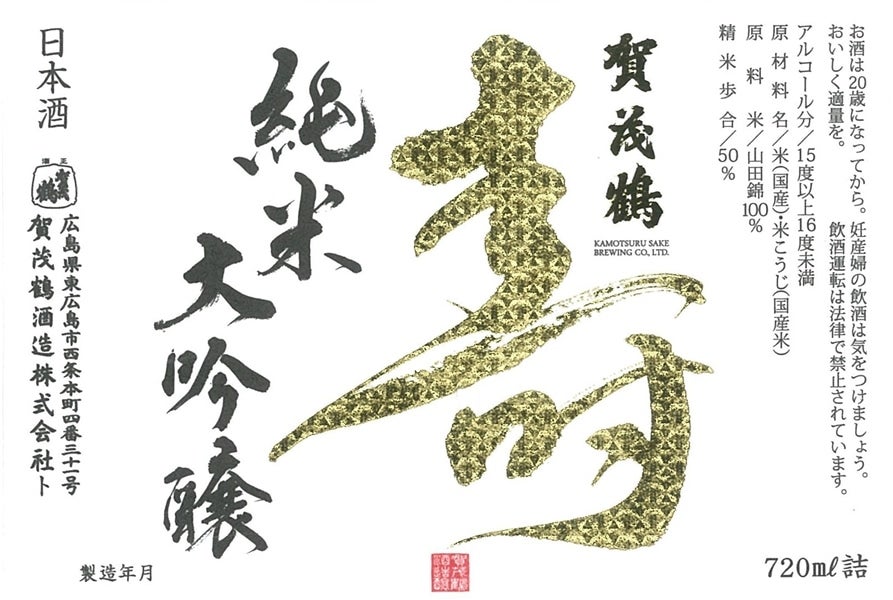 お酒は20歳になってから。妊産婦の飲酒は気をつけましょう。
おいしく適量を。飲酒運転は法律で禁止されています。
アルコール分／15度以上16度未満
原材料名／米(国産)・米こうじ(国産米)
原料米／山田錦100％
精米歩合／50％
賀茂鶴
KAMOTSURU SAKE
BREWING CO., LTD.
寿
純米
大吟醸
日本酒
賀茂鶴
広島県東広島市西条本町四番三十一号
賀茂鶴酒造株式会社ト
製造年月
720mℓ詰